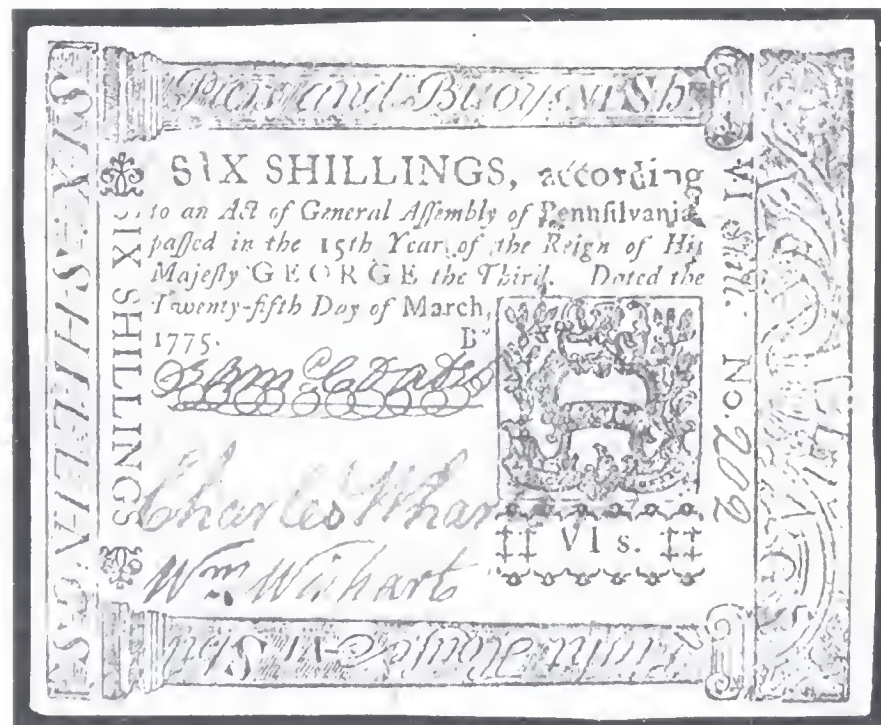 Piers and Buoys. VI Sh
SIX SHILLINGS, according
to an Act of General Assembly of Pennsilvania,
passed in the 15th Year of the Reign of His
Majesty GEORGE the Third. Dated the
Twenty-fifth Day of March,
1775.
Charles Whar
Wm Wishart
VI s.
SIX SHILLINGS
SIX SHILLINGS
VI Shill. No. 202
Light House VI Sh